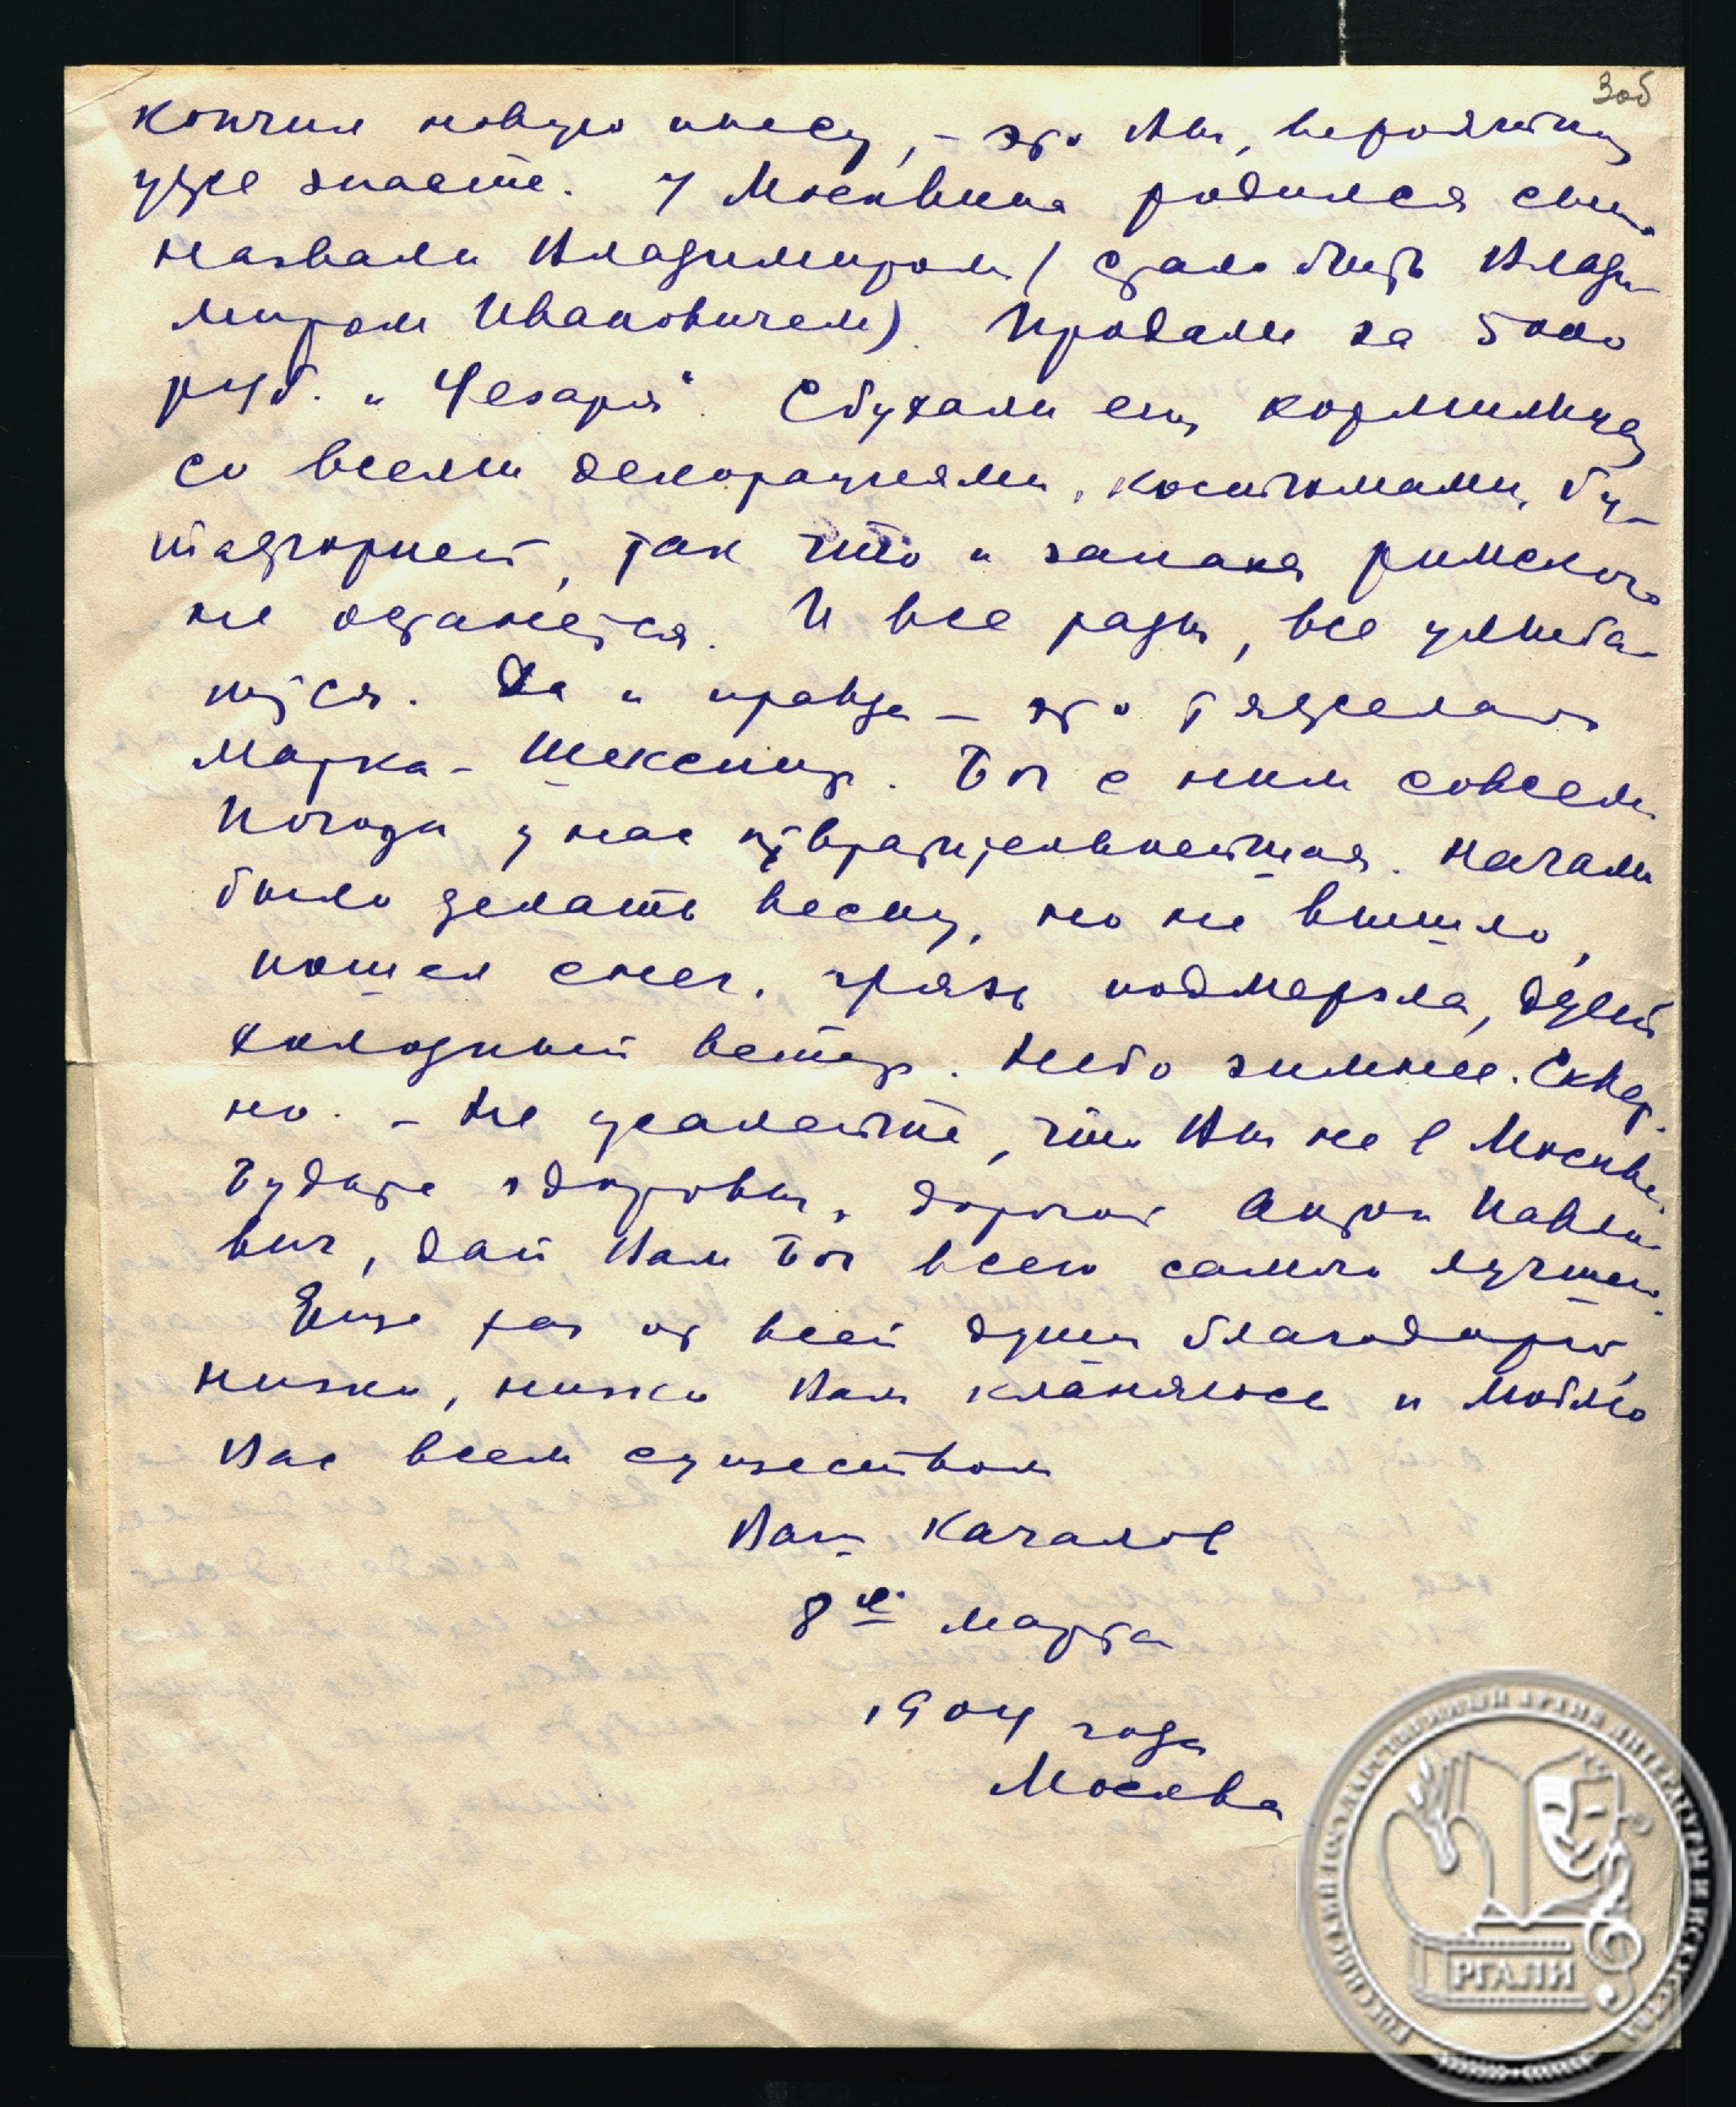 3об
кончил новую пьесу, – это Вы, вероятно,
уже знаете. У Москвина родился сын.
Назвали Владимиром (стало быть Влади-
миром Ивановичем). Продали за 5000
руб. „Чезаря". Сбухали ему кормилицу
со всеми декорациями, костюмами, бу-
тафорией, так что и запаха римского
не останется. И все рады, все улыба-
ются. Да и правда – это тяжелая
марка – Шекспир. Бог с ним совсем
Погода у нас отвратительнейшая. Начали
было делать весну, но не вышло,
пошел снег, грязь подмерзла, дует
холодный ветер. Небо зимнее. Сквер-
но. – Не жалейте, что Вы не в Москве.
Будьте здоровы, дорогой Антон Павло-
вич, дай Вам Бог всего самого лучшего.
Еще раз от всей души благодарю,
низко, низко Вам кланяюсь и люблю
Вас всем существом
Ваш Качалов
8е марта
1904 года
Москва
РОССИЙСКИЙ ГОСУДАРСТВЕННЫЙ АРХИВ ЛИТЕРАТУРЫ И ИСКУССТВА
РГАЛИ